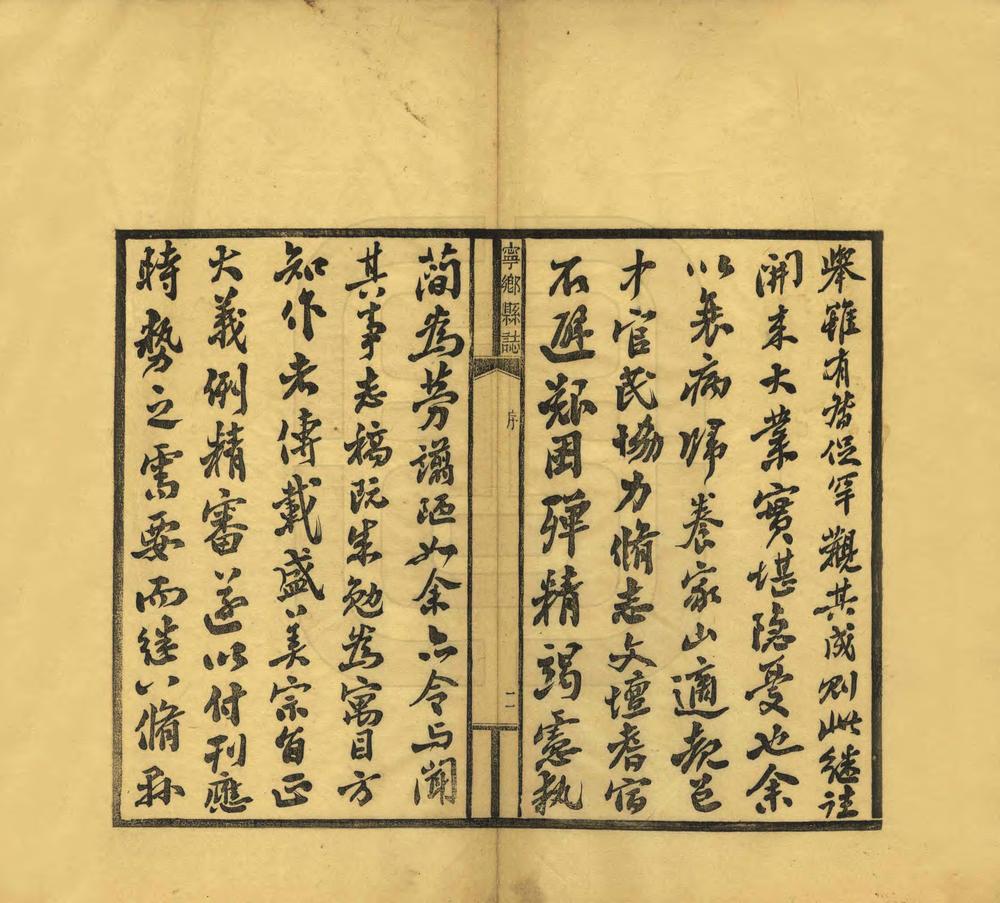 舉雖有醬促罕觀其成則此繼往
開來大業實堪隱憂也余
以衰病歸養家山適親邑
才官民協力脩志文壇耆宿
不避艱困殫精竭慮執
寧鄉縣誌
序
二
簡為勞譾陋如余亦令与聞
其事志稿既朱勉為寓目方
知作者傳載盛美宗旨正
大義例精審遂以付刊應
時勢之需要而繼以脩縣